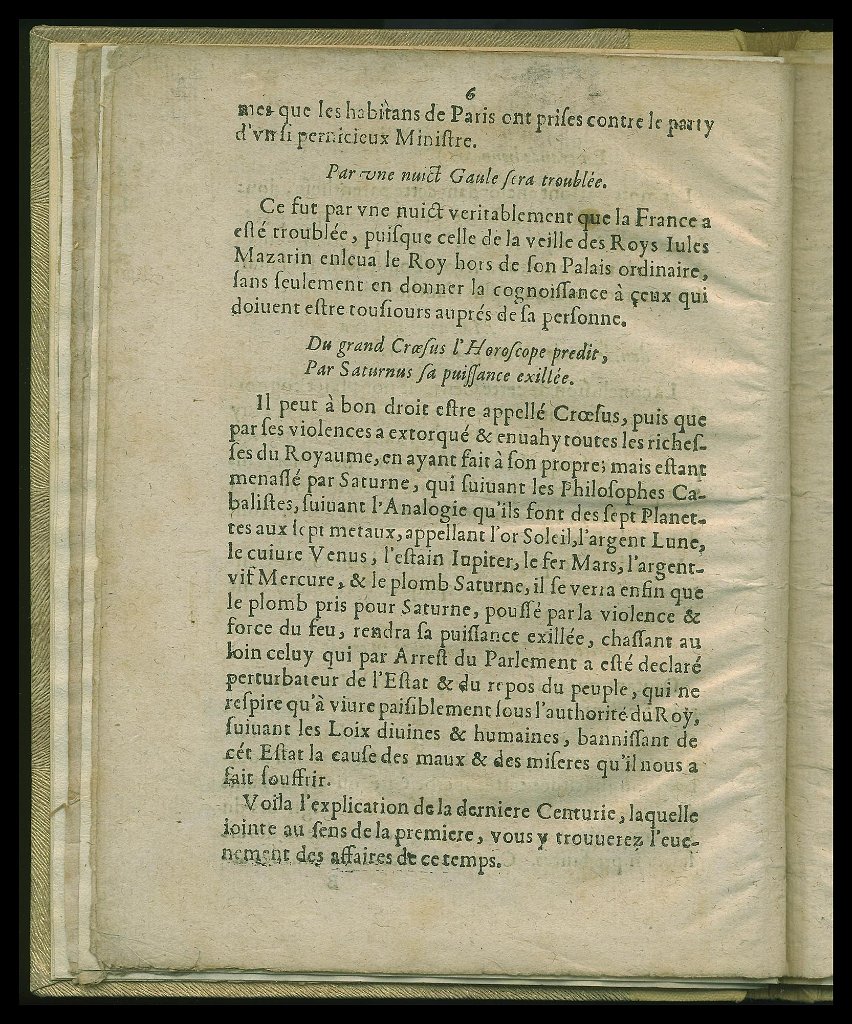 6
mes que les habitans de Paris ont prises contre le party
d'vn si pernicieux Ministre.
Par vne nuict Gaule sera troublée.
Ce fut par vne nuict veritablement que la France a
esté troublée, puisque celle de la veille des Roys Iules
Mazarin enleua le Roy hors de son Palais ordinaire,
sans seulement en donner la cognoissance à ceux qui
doiuent estre tousiours auprés de sa personne.
Du grand Crœsus l'Horoscope predit,
Par Saturnus sa puissance exillée.
Il peut à bon droit estre appellé Crœsus, puis que
par ses violences a extorqué & enuahy toutes les riches-
ses du Royaume, en ayant fait à son propre; mais estant
menassé par Saturne, qui suiuant les Philosophes Ca-
balistes, suiuant l'Analogie qu'ils font des sept Planet-
tes aux sept metaux, appellant l'or Soleil, l'argent Lune,
le cuiure Venus, l'estain Iupiter, le fer Mars, l'argent-
vif Mercure, & le plomb Saturne, il se verra enfin que
le plomb pris pour Saturne, poussé par la violence &
force du feu, rendra sa puissance exillée, chassant au
loin celuy qui par Arrest du Parlement a esté declaré
perturbateur de l'Estat & du repos du peuple, qui ne
respire qu'à viure paisiblement sous l'authorité du Roy,
suiuant les Loix diuines & humaines, bannissant de
cét Estat la cause des maux & des miseres qu'il nous a
fait souffrir.
Voila l'explication de la derniere Centurie, laquelle
iointe au sens de la premiere, vous y trouuerez l'eue-
nement des affaires de ce temps.